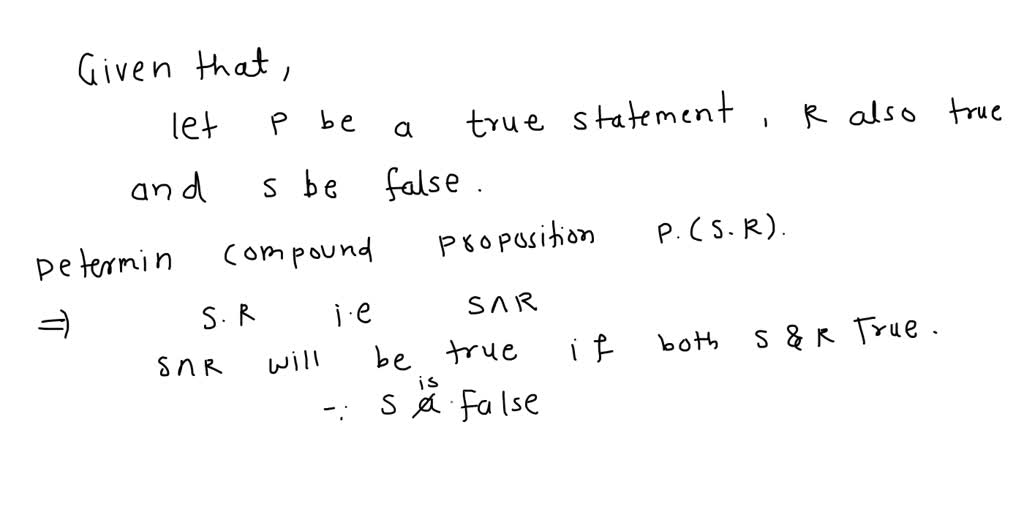 Given that,
let P be a true statement, R also true
and s be false.
Determin compound proposition P.(S.R).
⇒ S.R i.e S∧R
S∧R will be true if both S & R True.
∵ S is False